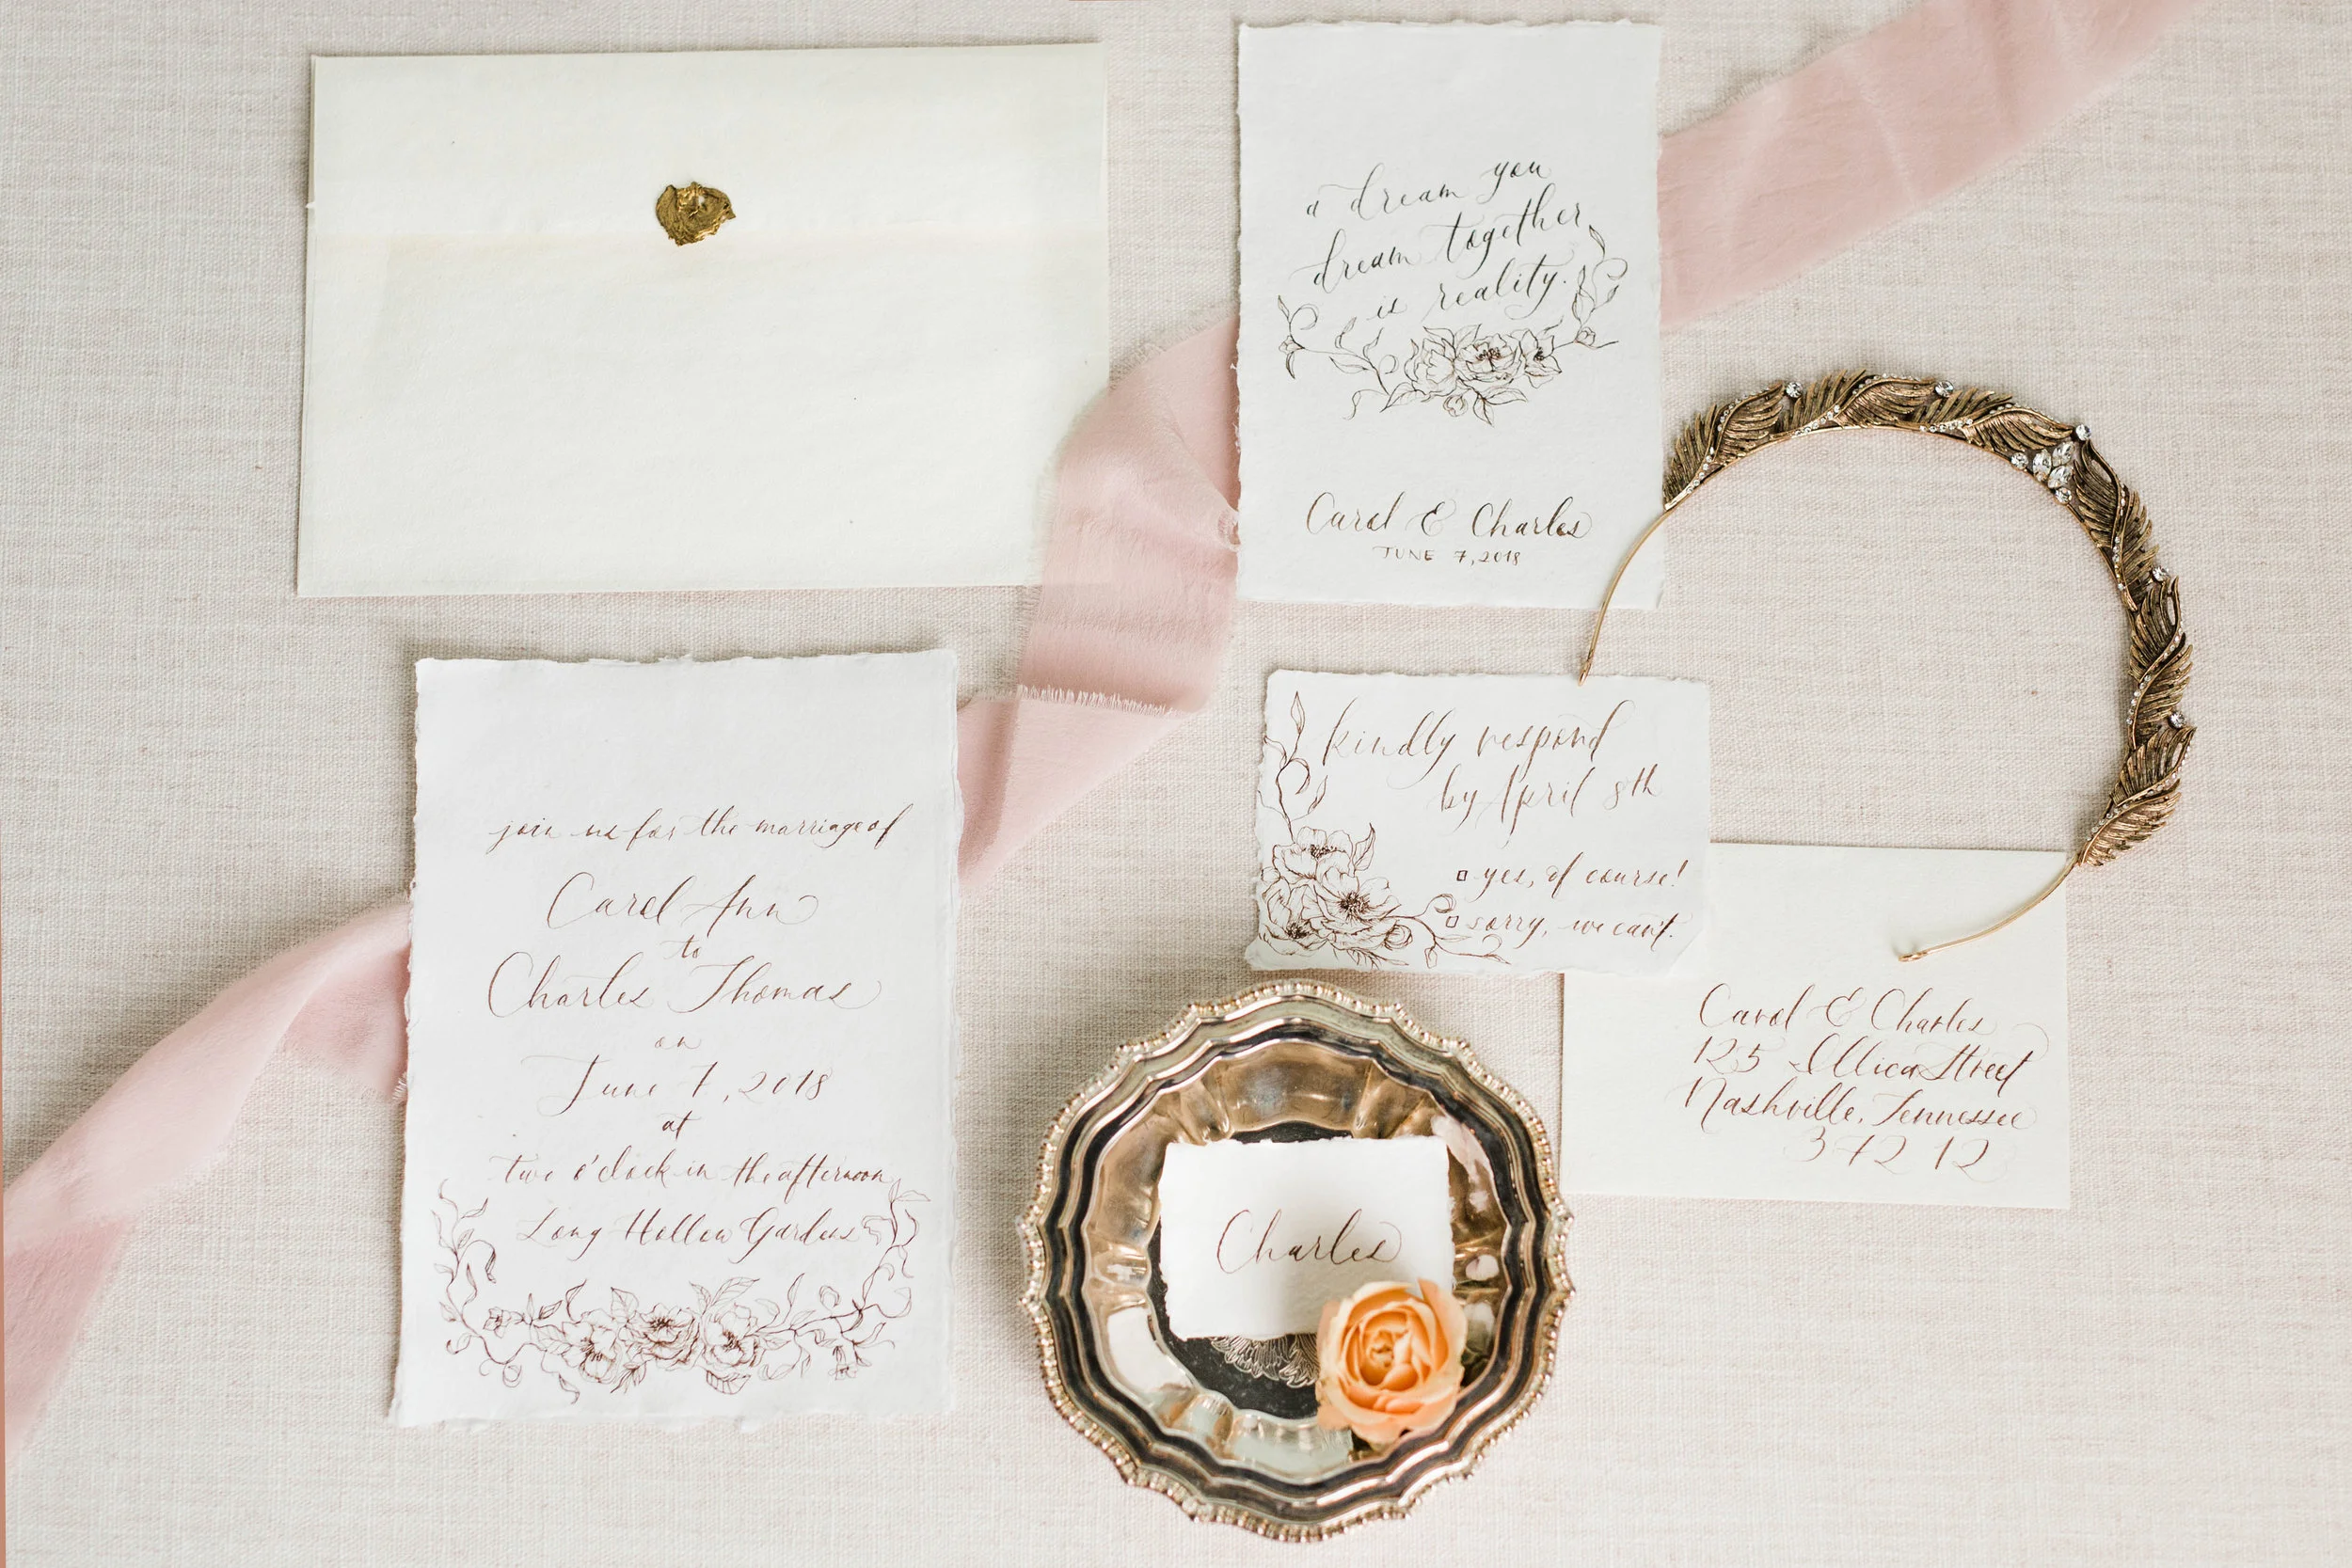 a dream you
dream together
is reality.
Carol & Charles
JUNE 7, 2018
join us for the marriage of
Carol Ann
to
Charles Thomas
on
June 7, 2018
at
two o'clock in the afternoon
Long Hollow Gardens
kindly respond
by April 8th
yes, of course!
sorry, we can't.
Carol & Charles
125 Street
Nashville, Tennessee
37212
Charles